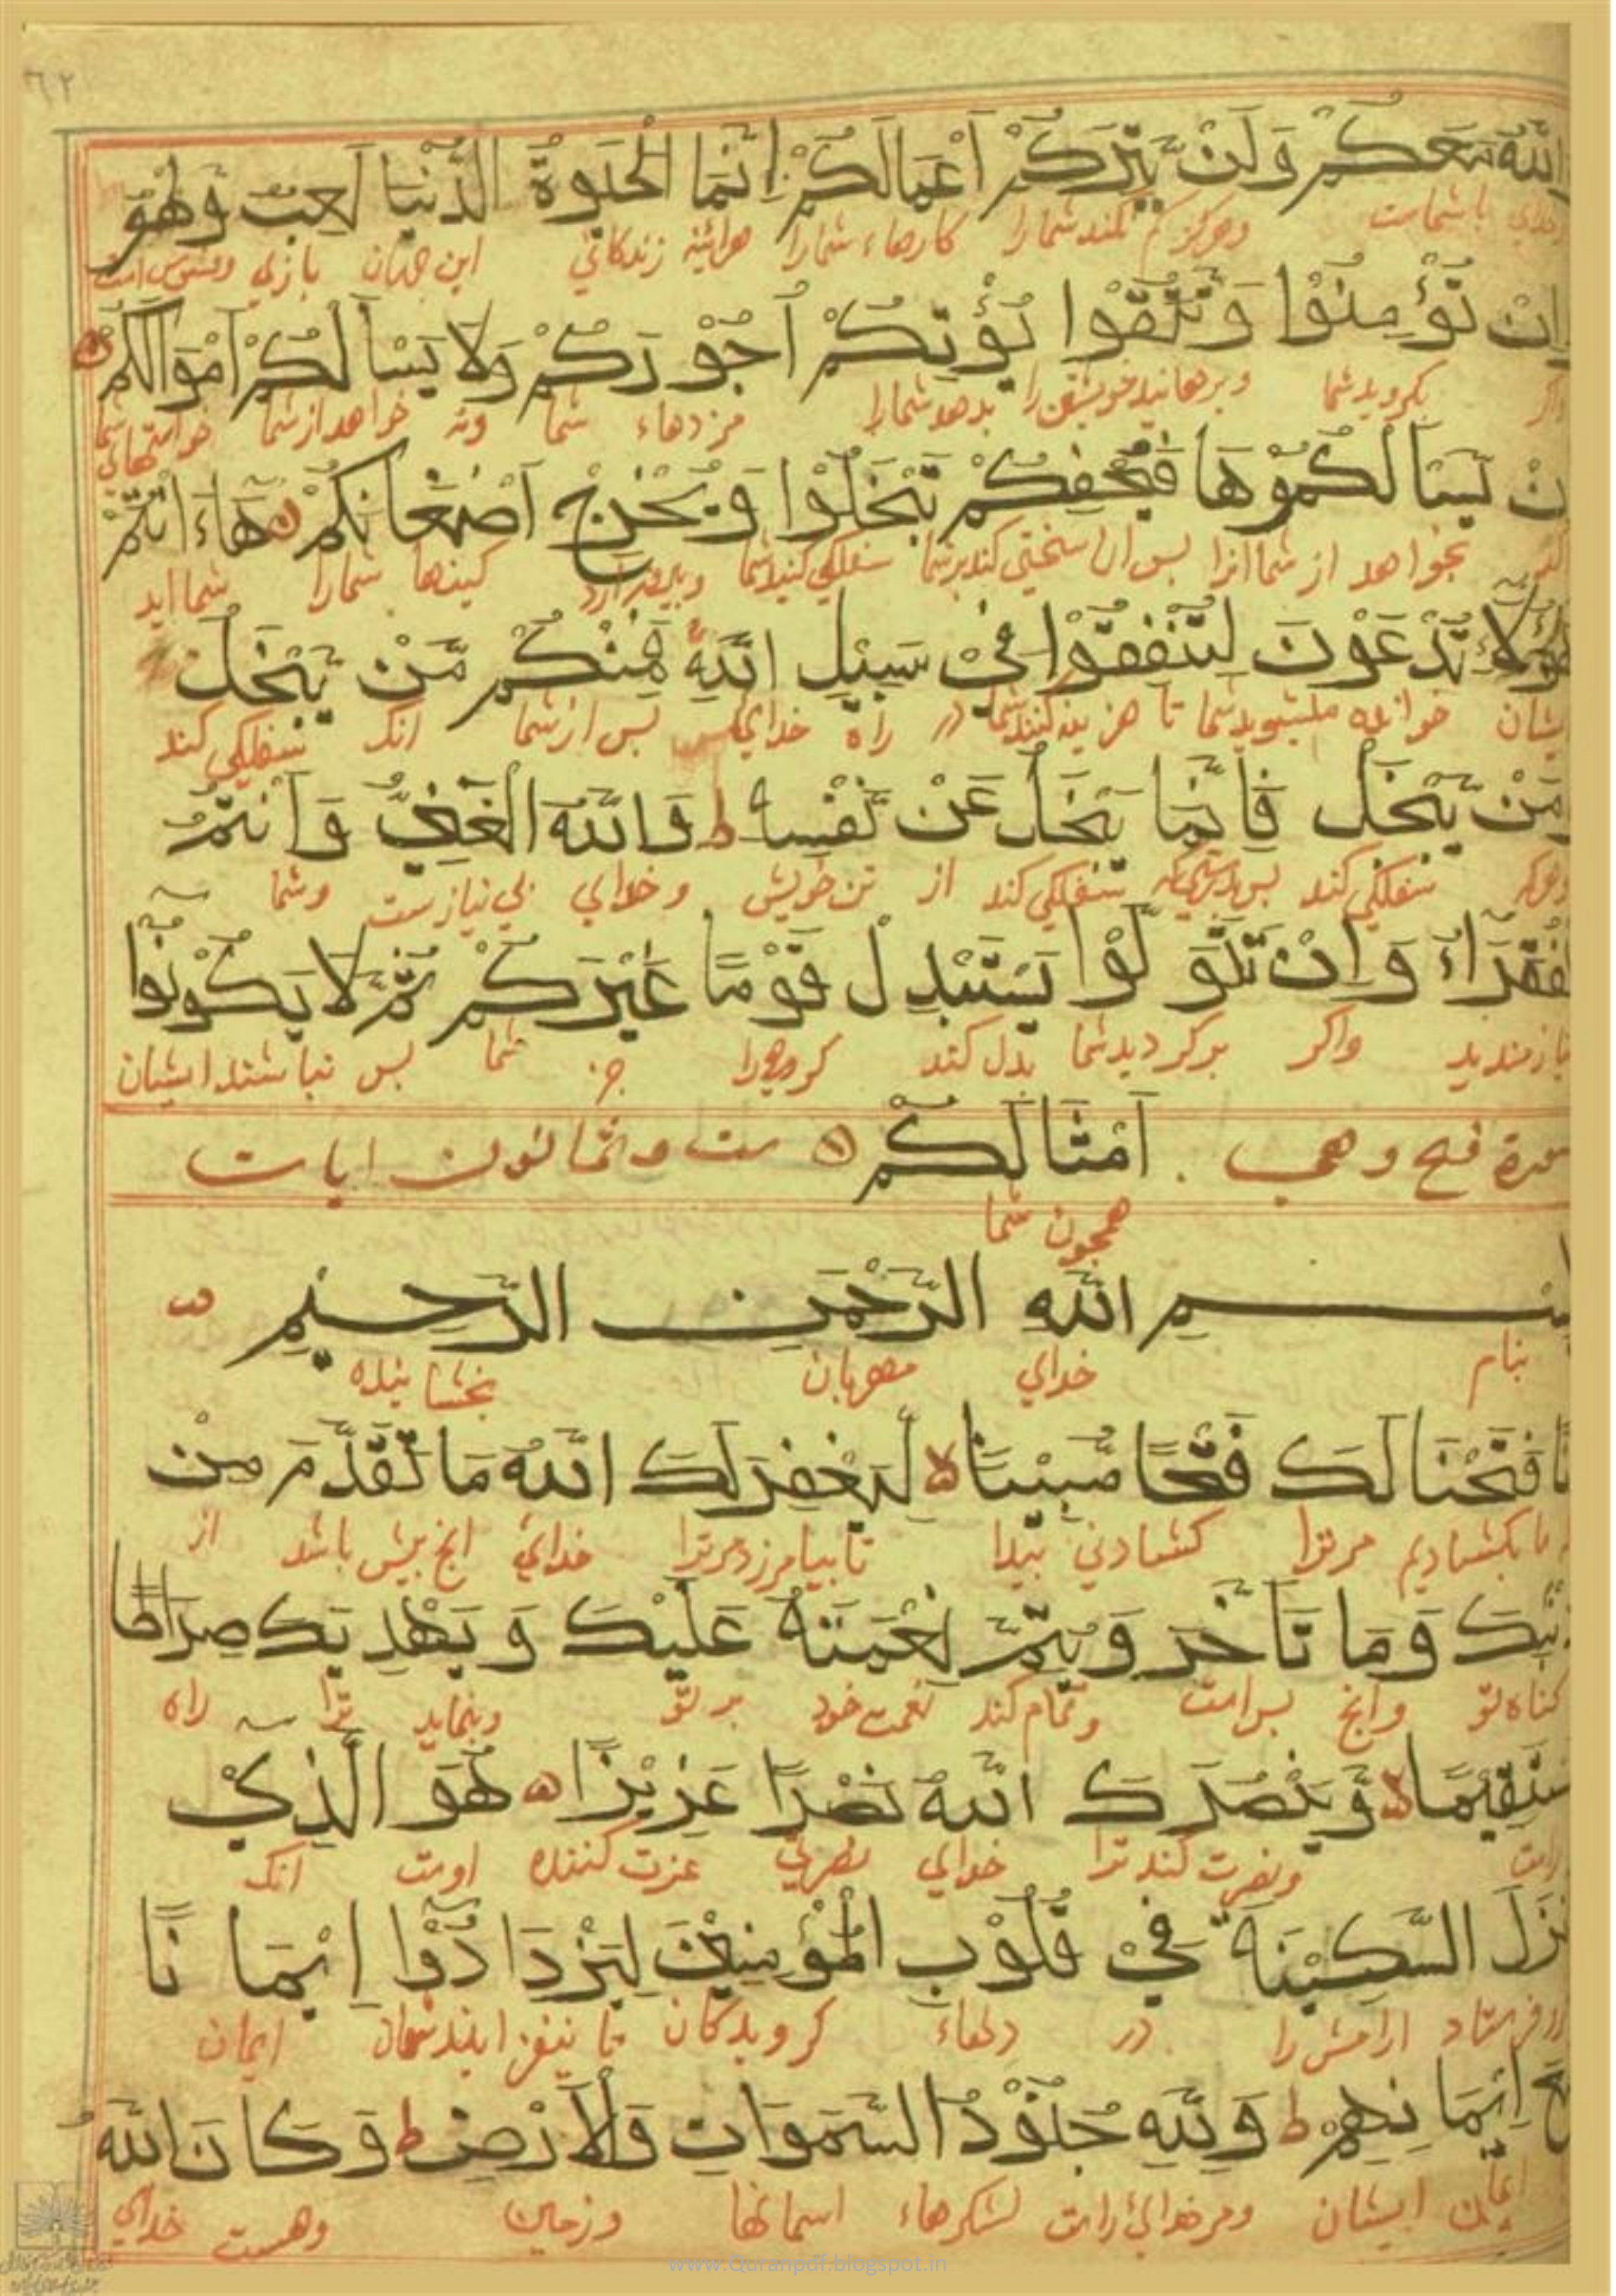 ٦٢
اللّٰهُ مَعَكُمْ وَلَنْ يَتِرَكُمْ أَعْمَالَكُمْ إِنَّمَا الْحَيَوةُ الدُّنْيَا لَعِبٌ وَلَهْوٌ
خدای با شماست وهرکز کم نکند شما را کارهاء شما را هرائینه زندکانی این جهان بازی وفسوس است
اِنْ تُؤْمِنُوْا وَتَتَّقُوْا يُؤْتِكُمْ اُجُوْرَكُمْ وَلَا يَسْأَلْكُمْ اَمْوَالَكُمْ
واکر بکروید شما وبرهانید خویشتن را بدهد شما را مزدهاء شما ونه خواهد از شما خواستهاتی شما
نْ يَسْأَلْكُمُوْهَا فَيُحْفِكُمْ تَبْخَلُوْا وَيُخْرِجْ اَضْغَانَكُمْ هَاءَانْتُمْ
بخواهد از شما انرا بس ان سختی کند بر شما سفلکی کنید شما کینها شما را شما اید
هٰؤُلَاءِ تُدْعَوْنَ لِتُنْفِقُوْا فِيْ سَبِيْلِ اللّٰهِ فَمِنْكُمْ مَنْ يَبْخَلُ
یشان خوانده میشوید شما تا هزینه کنید شما در راه خدای بس از شما انک سفلکی کند
وَمَنْ يَبْخَلْ فَاِنَّمَا يَبْخَلُ عَنْ نَفْسِهٖ ط وَاللّٰهُ الْغَنِيُّ وَاَنْتُمُ
وهرکه سفلکی کند بس بدرستیکه سفلکی کند از تن خویش وخدای بی نیازست وشما
لْفُقَرَاءُ وَاِنْ تَتَوَلَّوْا يَسْتَبْدِلْ قَوْمًا غَيْرَكُمْ ثُمَّ لَا يَكُوْنُوْا
نیازمندید واکر برکردید شما بدل کند کروهی را جز شما بس نباشند ایشان
سورة فتح وهی اَمْثَالَكُمْ ست وثمانون ایات
همچون شما
بِسْمِ اللّٰهِ الرَّحْمٰنِ الرَّحِيْمِ
بنام خدای مهربان بخشاینده
نَّا فَتَحْنَا لَكَ فَتْحًا مُبِيْنًا لا لِيَغْفِرَ لَكَ اللّٰهُ مَا تَقَدَّمَ مِنْ
ما بکشادیم مر ترا کشادنی بیدا تا بیامرزد مر ترا خدای انچ بیش باشد از
ذَنْبِكَ وَمَا تَأَخَّرَ وَيُتِمَّ نِعْمَتَهُ عَلَيْكَ وَيَهْدِيَكَ صِرَاطًا
کناه تو وانچ بس است وتمام کند نعمت خود بر تو وبنماید ترا راه
مُسْتَقِيْمًا لا وَيَنْصُرَكَ اللّٰهُ نَصْرًا عَزِيْزًا هُوَ الَّذِيْ
راست ونصرت کند ترا خدای نصرتی عزت کننده اوست انک
نْزَلَ السَّكِيْنَةَ فِيْ قُلُوْبِ الْمُؤْمِنِيْنَ لِيَزْدَادُوْا اِيْمَانًا
فرستاد ارامش را در دلهاء کرویدکان تا بیفزایند شمان ایمان
مَعَ اِيْمَانِهِمْ ط وَلِلّٰهِ جُنُوْدُ السَّمٰوَاتِ وَالْاَرْضِ ط وَكَانَ اللّٰهُ
ایمان ایشان ومر خدای راست لشکرهاء اسمانها وزمین وهست خدای
www.Quranpdf.blogspot.in